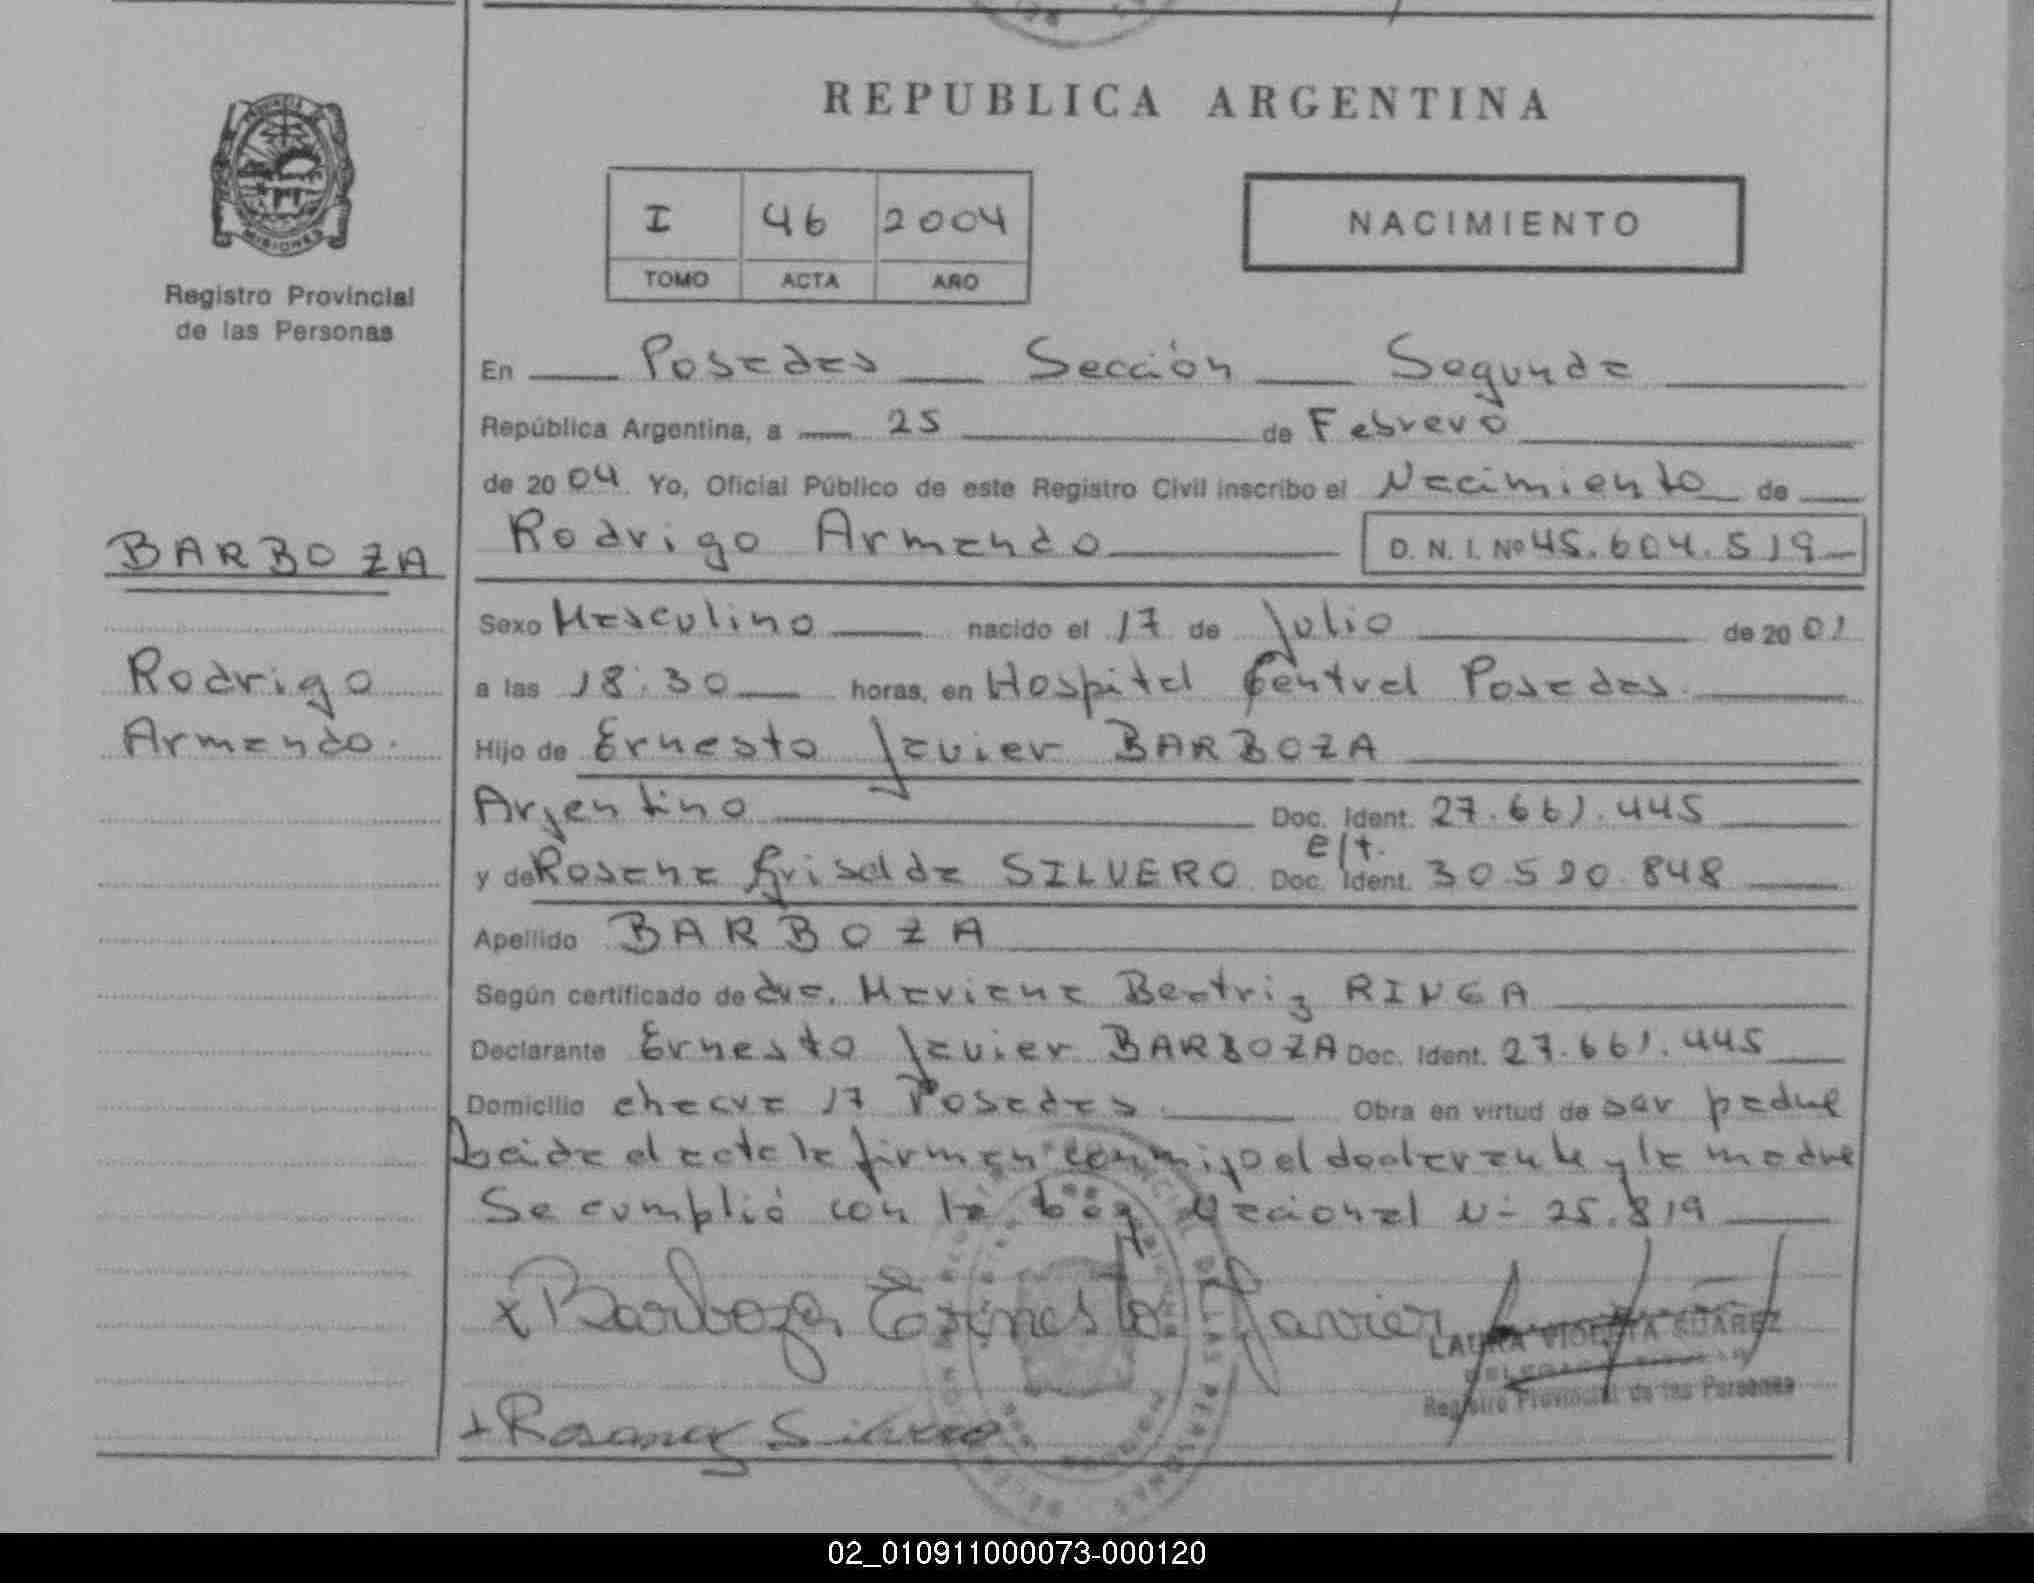 REPUBLICA ARGENTINA
PROVINCIA
MISIONES
Registro Provincial
de las Personas
I 46 2004
TOMO ACTA AÑO
NACIMIENTO
En Posadas Sección Segunda
República Argentina, a 25 de Febrero
de 2004. Yo, Oficial Público de este Registro Civil inscribo el Nacimiento de
Rodrigo Armando D. N. I. Nº 45.604.519
BARBOZA
Rodrigo
Armando.
Sexo Masculino nacido el 17 de Julio de 2001
a las 18:30 horas, en Hospital Central Posadas.
Hijo de Ernesto Javier BARBOZA
Argentino Doc. Ident. 27.661.445
e/t.
y de Rosana Griselda SILVERO Doc. Ident. 30.590.848
Apellido BARBOZA
Según certificado de dra. Mariana Beatriz RINGA
Declarante Ernesto Javier BARBOZA Doc. Ident. 27.661.445
Domicilio 17 Posadas Obra en virtud de ser padre
Leída el acta la firman conmigo el declarante y la madre
Se cumplió con la Ley Nacional Nº 25.819
x Barboza Ernesto Javier
LAURA VIOLETA SUAREZ
Registro Provincial de las Personas
x Rosana Silvero
02_010911000073-000120